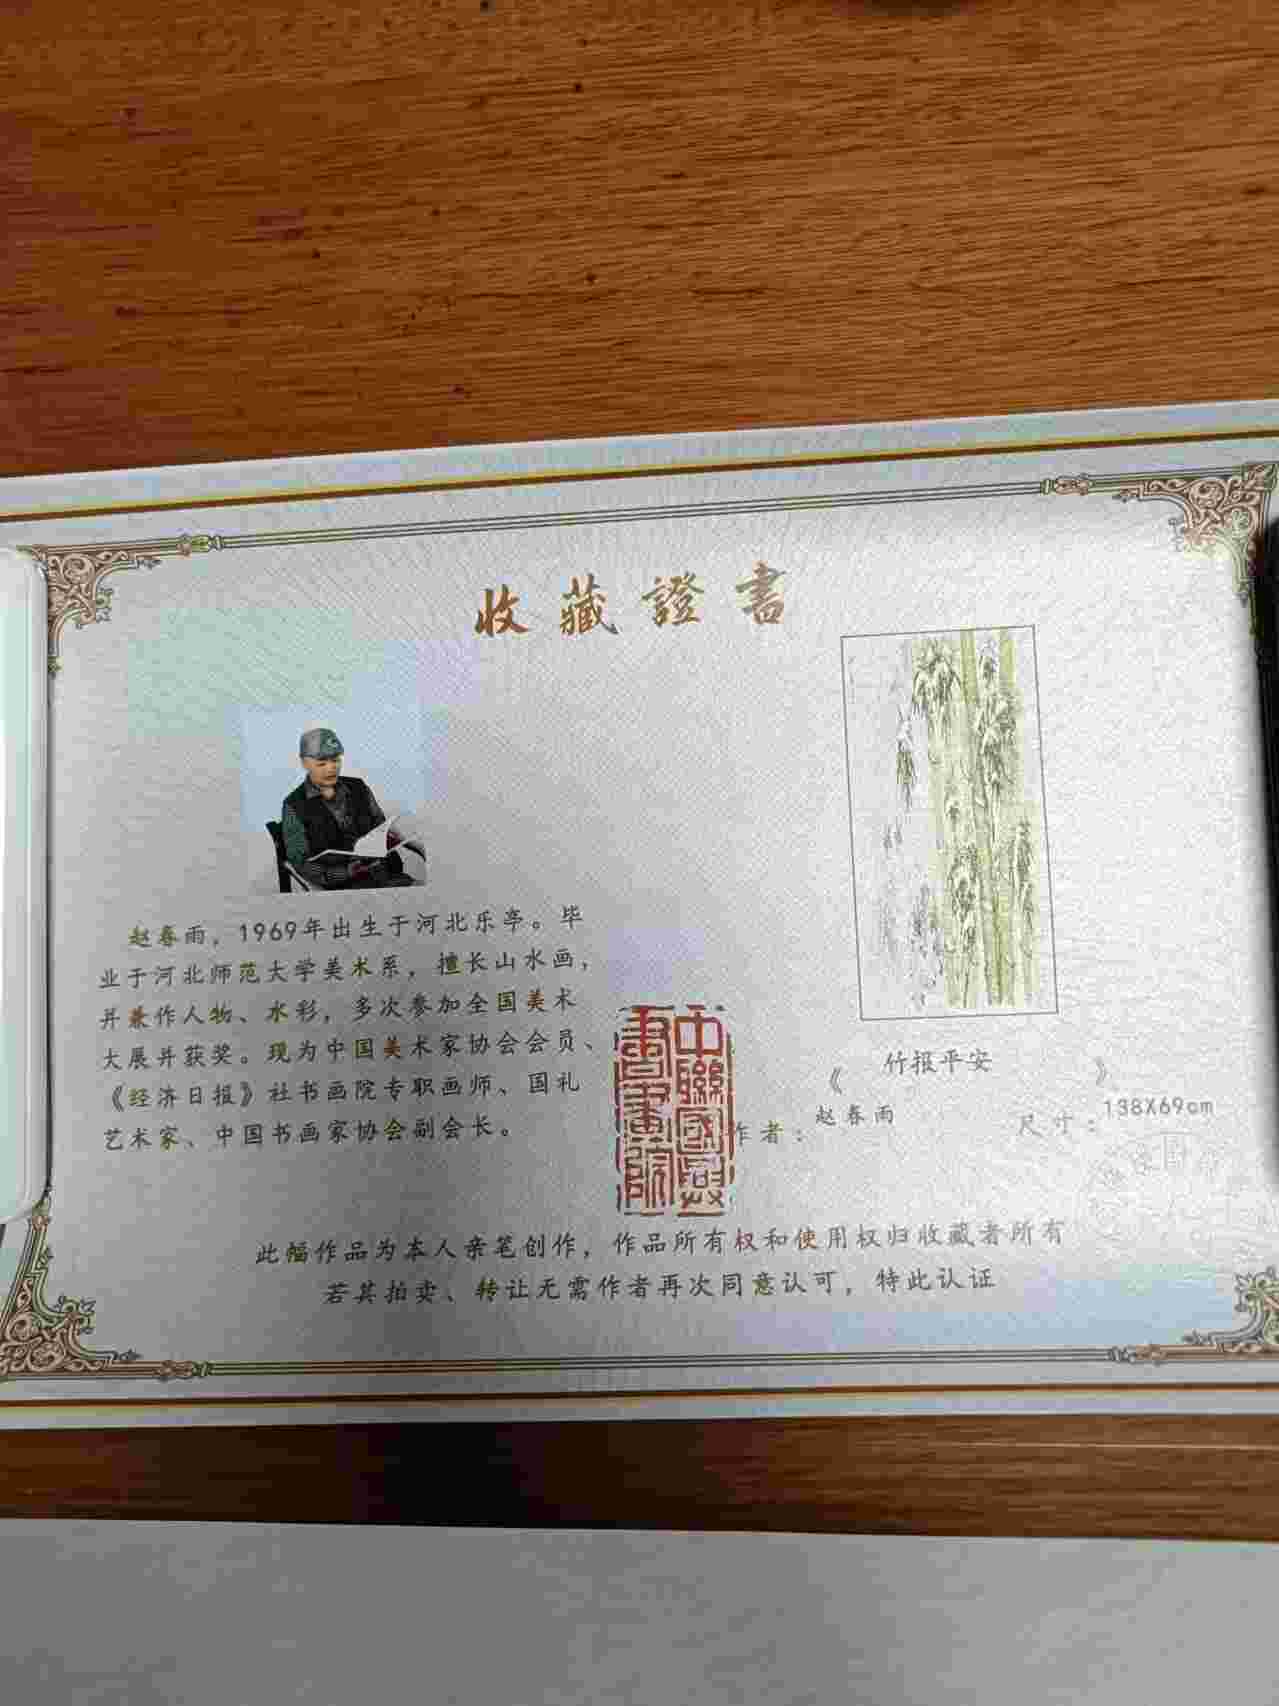 收藏證書
赵春雨，1969年出生于河北乐亭。毕
业于河北师范大学美术系，擅长山水画，
并兼作人物、水彩，多次参加全国美术
大展并获奖。现为中国美术家协会会员、
《经济日报》社书画院专职画师、国礼
艺术家、中国书画家协会副会长。
《竹报平安》
作者：赵春雨
尺寸：138X69cm
書畫院
此幅作品为本人亲笔创作，作品所有权和使用权归收藏者所有
若其拍卖、转让无需作者再次同意认可，特此认证